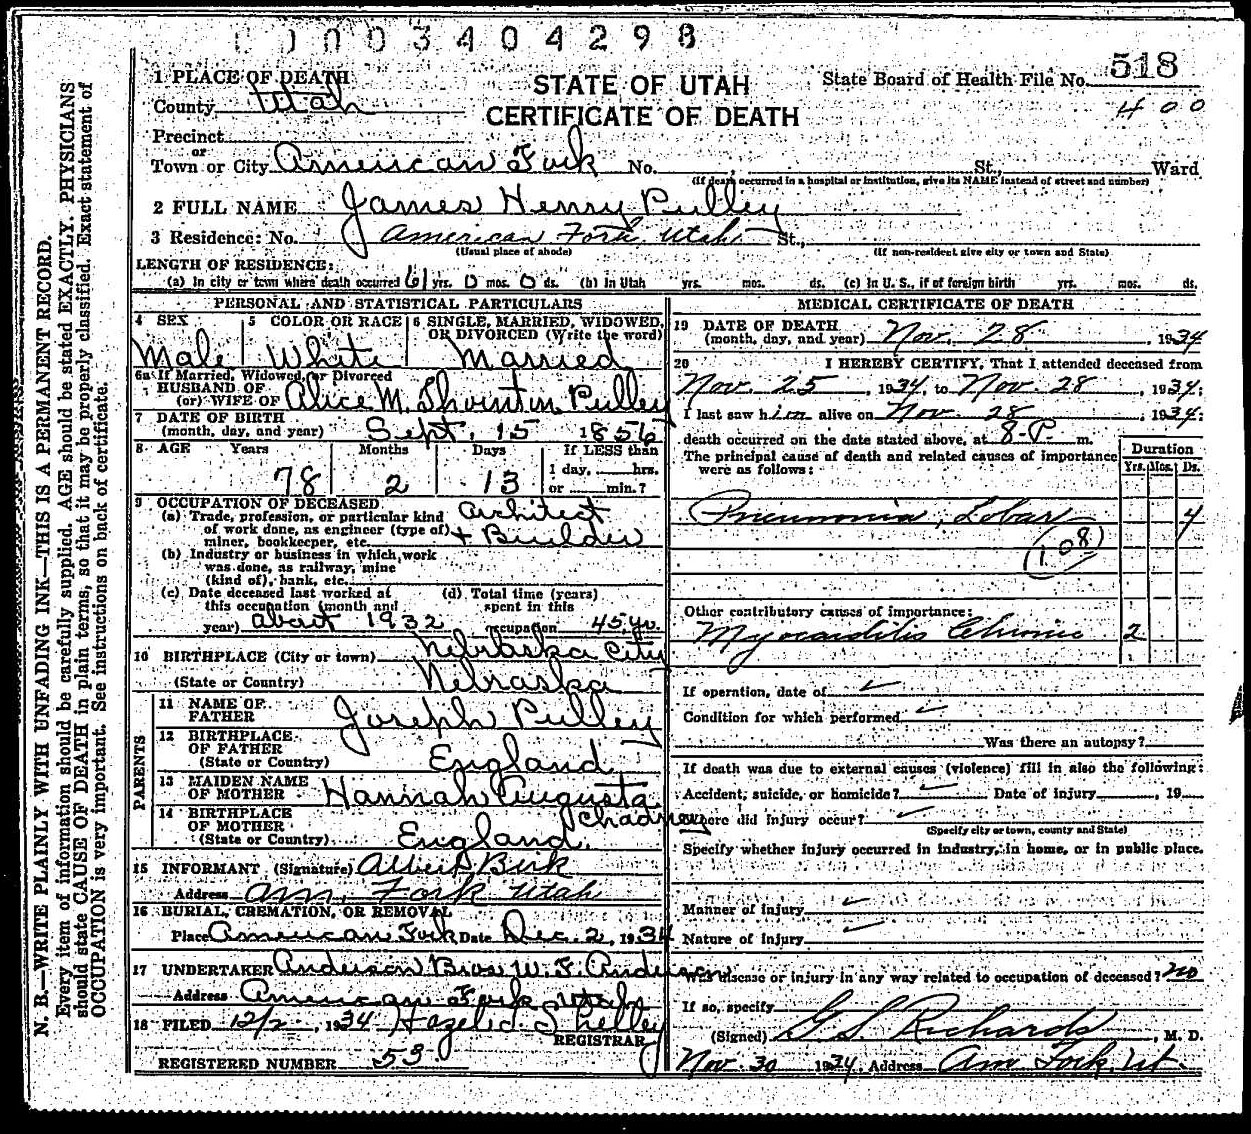 0003404298
1 PLACE OF DEATH
County Utah
STATE OF UTAH
CERTIFICATE OF DEATH
State Board of Health File No. 518
400
Precinct
or
Town or City American Fork No. St., Ward
(If death occurred in a hospital or institution, give its NAME instead of street and number)
2 FULL NAME James Henry Pulley
3 Residence: No. American Fork, Utah St.,
(Usual place of abode) (If non-resident give city or town and State)
LENGTH OF RESIDENCE:
(a) In city or town where death occurred 61 yrs. 0 mos. 0 ds. (b) In Utah yrs. mos. ds. (c) In U. S., if of foreign birth yrs. mos. ds.
PERSONAL AND STATISTICAL PARTICULARS
4 SEX Male
5 COLOR OR RACE White
6 SINGLE, MARRIED, WIDOWED, OR DIVORCED (Write the word) Married
6a If Married, Widowed, or Divorced
HUSBAND OF
(or) WIFE OF Alice M. Thornton Pulley
7 DATE OF BIRTH
(month, day, and year) Sept. 15 1856
8 AGE Years Months Days If LESS than
78 2 13 1 day, hrs.
or min.?
9 OCCUPATION OF DECEASED
(a) Trade, profession, or particular kind of work done, as engineer (type of) miner, bookkeeper, etc. Architect + Builder
(b) Industry or business in which work was done, as railway, mine (kind of), bank, etc.
(c) Date deceased last worked at this occupation (month and year) about 1932
(d) Total time (years) spent in this occupation 45 yr.
10 BIRTHPLACE (City or town) Nebraska City
(State or Country) Nebraska
PARENTS
11 NAME OF FATHER Joseph Pulley
12 BIRTHPLACE OF FATHER
(State or Country) England
13 MAIDEN NAME OF MOTHER Hannah Augusta
14 BIRTHPLACE OF MOTHER
(State or Country) England
15 INFORMANT (Signature)
Address Am. Fork Utah
16 BURIAL, CREMATION, OR REMOVAL
Place American Fork Date Dec. 2, 1934
17 UNDERTAKER Anderson Bros W. F. Anderson
Address American Fork Utah
18 FILED 12/2, 1934 Shelley
REGISTRAR
REGISTERED NUMBER 53
MEDICAL CERTIFICATE OF DEATH
19 DATE OF DEATH
(month, day, and year) Nov. 28, 1934
20 I HEREBY CERTIFY, That I attended deceased from
Nov. 25, 1934, to Nov. 28, 1934;
I last saw him alive on Nov. 28, 1934;
death occurred on the date stated above, at 8-P. m.
The principal cause of death and related causes of importance were as follows:
Duration
Yrs. Mos. Ds.
Pneumonia, Lobar 4
(108)
Other contributory causes of importance:
Myocarditis Chronic 2
If operation, date of
Condition for which performed
Was there an autopsy?
If death was due to external causes (violence) fill in also the following:
Accident, suicide, or homicide? Date of injury, 19
Where did injury occur?
(Specify city or town, county and State)
Specify whether injury occurred in industry, in home, or in public place.
Manner of injury
Nature of injury
Was disease or injury in any way related to occupation of deceased? No
If so, specify
(Signed) G S Richards, M. D.
Nov. 30 1934, Address Am Fork, Ut.
N. B.—WRITE PLAINLY WITH UNFADING INK—THIS IS A PERMANENT RECORD.
Every item of information should be carefully supplied. AGE should be stated EXACTLY. PHYSICIANS
should state CAUSE OF DEATH in plain terms, so that it may be properly classified. Exact statement of
OCCUPATION is very important. See instructions on back of certificate.